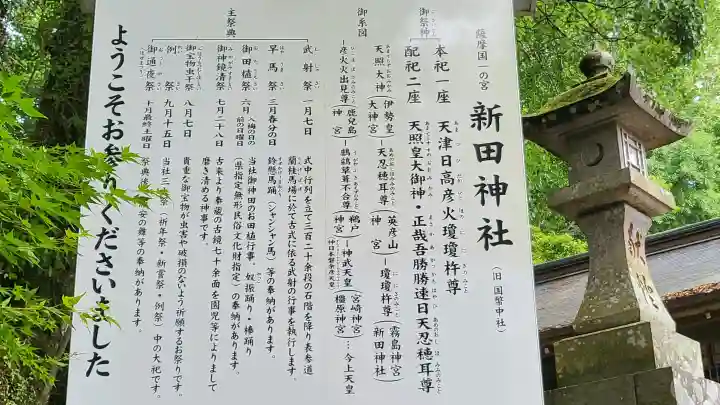 薩摩国一の宮
新田神社
(旧国幣中社)
御祭神
本祀一座 天津日高彦火瓊瓊杵尊
配祀二座 天照皇大御神・正哉吾勝勝速日天忍穂耳尊
御系図
天照大神(伊勢皇大神宮)―天忍穂耳尊(英彦山神宮)―瓊瓊杵尊(霧島神宮)(新田神社)
―彦火火出見尊(鹿児島神宮)―鵜鶿草葺不合尊(鵜戸神宮)―神武天皇(宮崎神宮)(橿原神宮)…今上天皇
主祭典
武射祭 一月七日 式中行列を立て三百二十余段の石階を降り表参道
蘭桂馬場に於て古式に依る武射の行事を執行します。
早馬祭 三月春分の日 鈴懸馬踊(シャンシャン馬)等の奉納があります。
御田植祭 六月 入梅の日の前の日曜日 当社御神田のお田植行事。奴振踊り・棒踊り
(県指定無形民俗文化財指定)の奉納があります。
御神鏡清祭 七月二十八日 古来より奉蔵の古鏡七十余面を園児等によりまして
磨き清める神事です。
御宝物虫干祭 八月七日 貴重な御宝物が虫害や破損のないよう祈願するお祭りです。
例祭 九月十五日 当社三大祭(祈年祭・新嘗祭・例祭)中の大祀です。
御通夜祭 十月最終土曜日 祭典後 安の舞等の奉納があります。
ようこそお参りくださいました